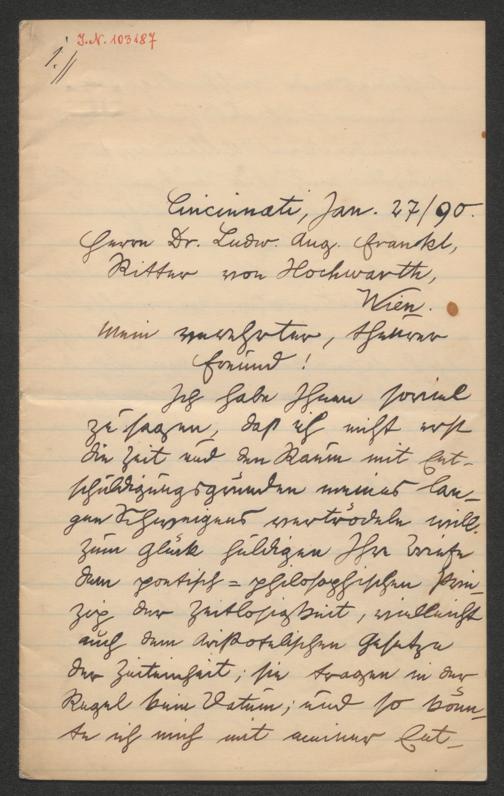 I.N. 103187
1.//
Cincinnati, Jan. 27/90.
Herrn Dr. Ludw. Aug. Frankl,
Ritter von Hochwarth,
Wien.
Mein verehrter, theurer
Freund!
Ich habe Ihnen soviel
zu sagen, daß ich nicht erst
die Zeit und den Raum mit Ent-
schuldigungsgründen meines lan-
gen Schweigens vertrödeln will.
Zum Glück huldigen Ihre Briefe
dem poetisch-philosophischen Prin-
zip der Zeitlosigkeit, vielleicht
auch dem Aristotelischen Gesetze
der Zeiteinheit; sie tragen in der
Regel kein Datum; und so könn-
te ich mich mit meiner Ent-